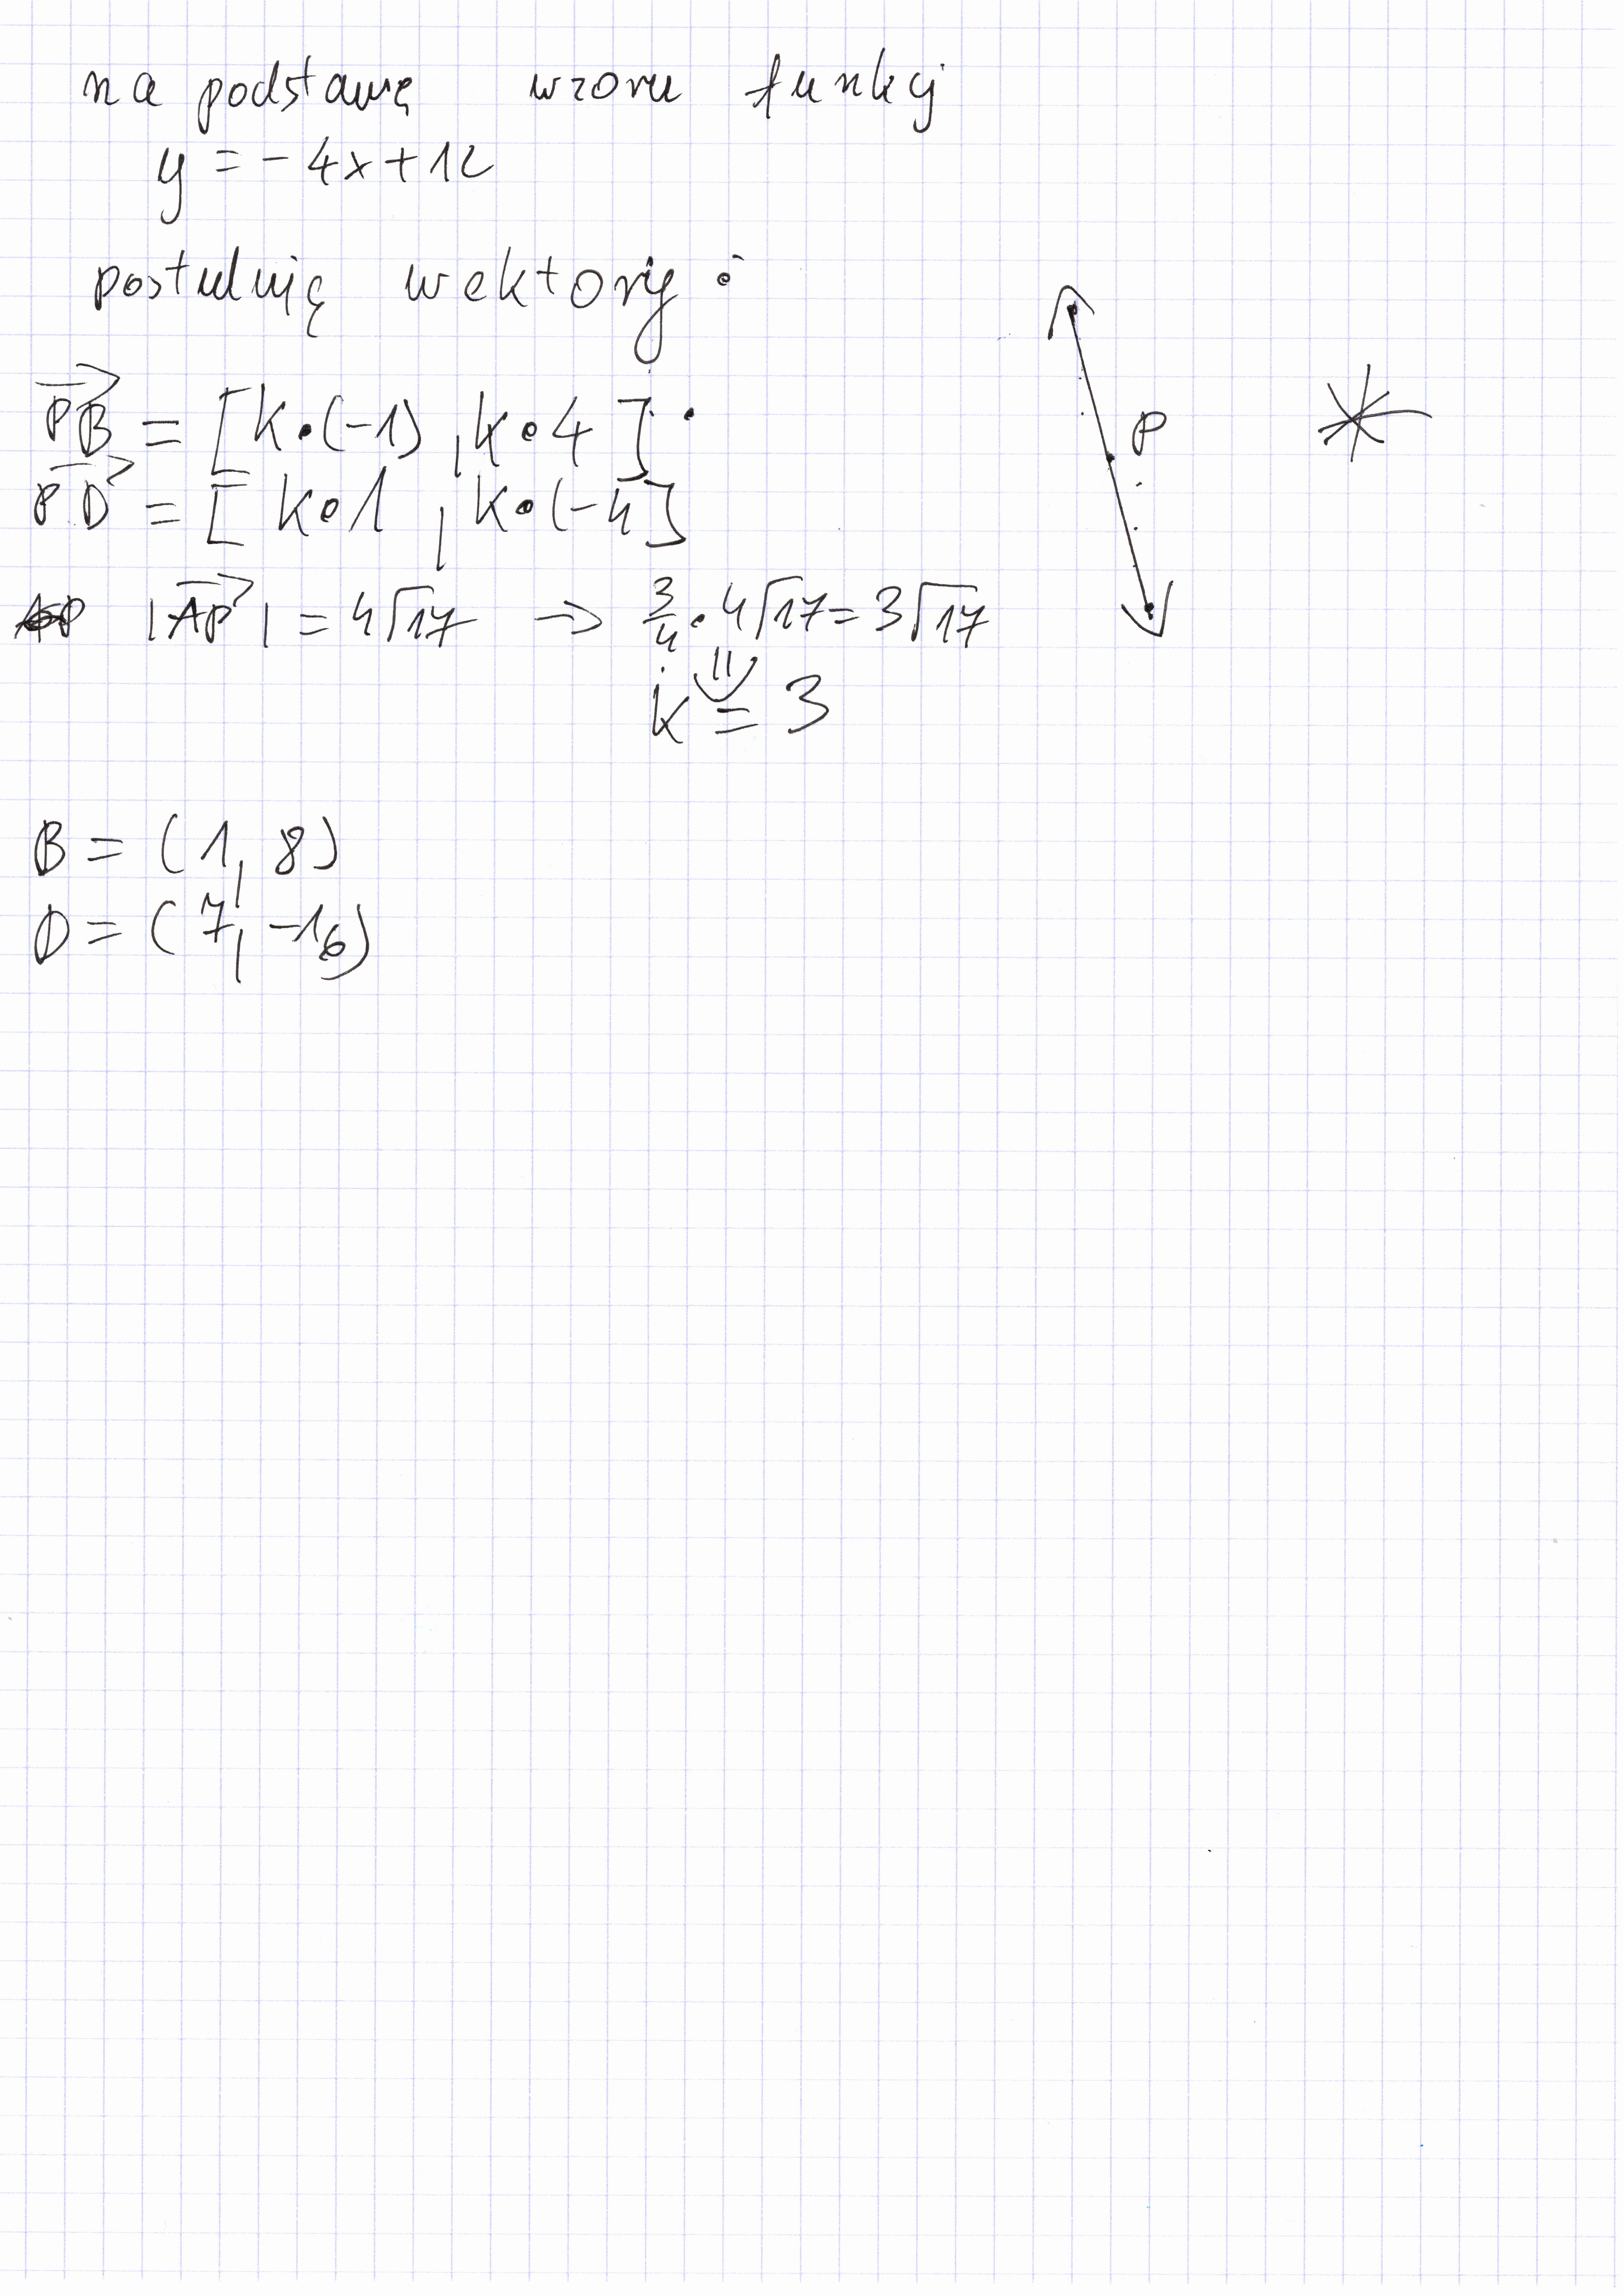 na podstawię wzoru funkcj
y = -4x+12
postuluję wektory :
P
*
→PB = [k•(-1) , k•4]
→PD = [k•1 , k•(-4]
|→AP| = 4√17 → 3/4 • 4√17 = 3√17
k = 3
B = (1, 8)
D = (7, -16)